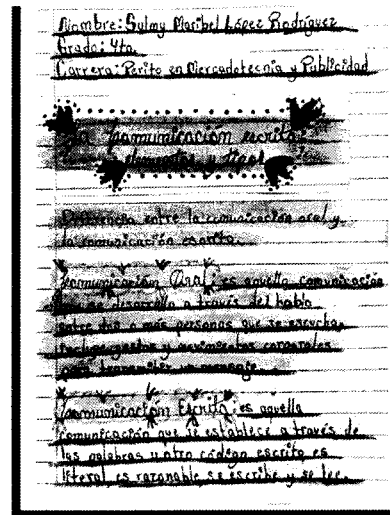 Nombre: Sulmy Maribel López Rodríguez
Grado: 4to.
Carrera: Perito en Mercadotecnia y Publicidad
Comunicación escrita
elementos y tipos
Diferencia entre la comunicación oral y
la comunicación escrita.
Comunicación Oral: es aquella comunicación
que se desarrolla a través del habla
entre dos o más personas que se escuchan,
gestos y movimientos corporales
para transmitir un mensaje.
Comunicación Escrita: es aquella
comunicación que se establece a través de
las palabras u otro código escrito es
literal es razonable se escribe y se lee.